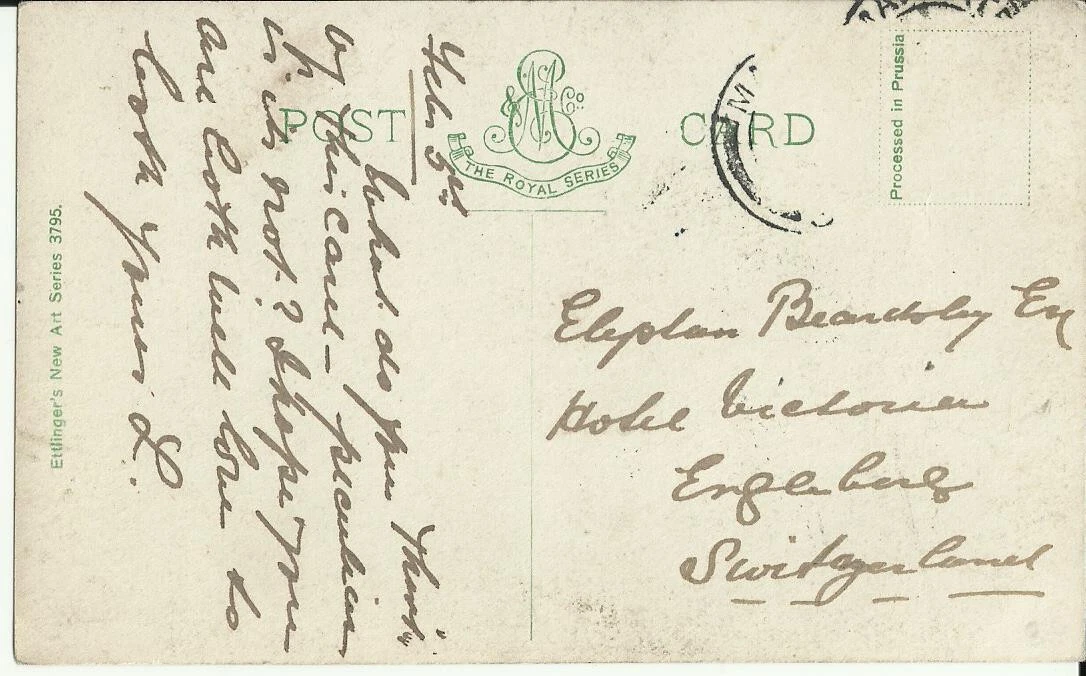 POST CARD
& A M Co
THE ROYAL SERIES
Processed in Prussia
Ettlinger's New Art Series 3795.
Feb: 5th
What do you think
of this card – peculiar
is it not? I hope you
are both well love to
both Yours L.
Beardsley Esq
Hotel Victoria
Engleberg
Switzerland